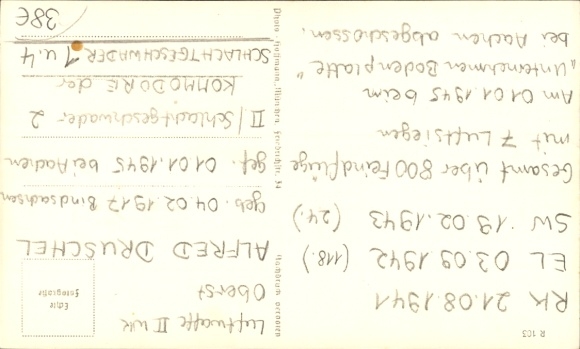 R 103
RK 21.08.1941
EL 03.09.1942 (118.)
SW 19.02.1943 (24.)
Gesamt über 800 Feindflüge
mit 7 Luftsiegen
Am 01.01.1945 beim
"Unternehmen Bodenplatte"
bei Aachen abgeschossen.
Photo Hoffmann, München, Friedrichstr. 34
Nachdruck verboten
Echte
Fotografie
Luftwaffe II WK
Oberst
ALFRED DRUSCHEL
geb. 04.02.1917 Bindsachsen
gef. 01.01.1945 bei Aachen
II/Schlachtgeschwader 2
KOMMODORE der
SCHLACHTGESCHWADER 1 u. 4
38€